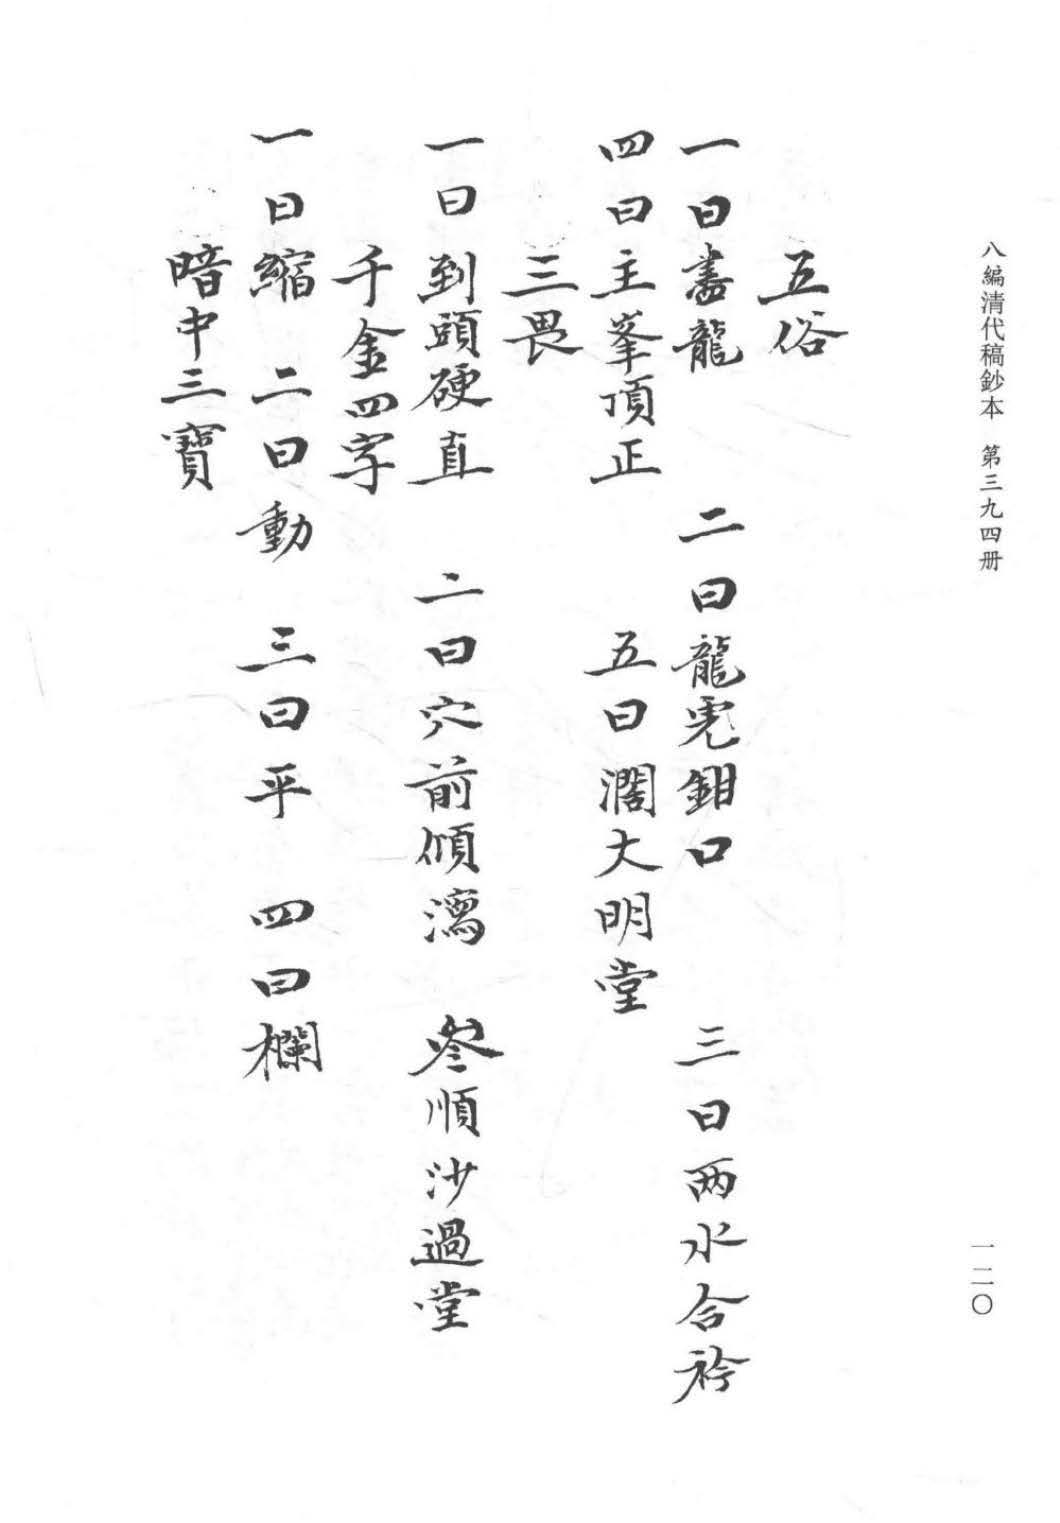 八編清代稿鈔本　第三九四册
一二〇
五俗
一曰畫龍　二曰龍虎鉗口　三曰两水合衿
四曰主峯頂正　五曰濶大明堂
三畏
一曰到頭硬直　二曰穴前傾瀉　叁順沙過堂
千金四字
一曰縮　二曰動　三曰平　四曰欄
暗中三寶